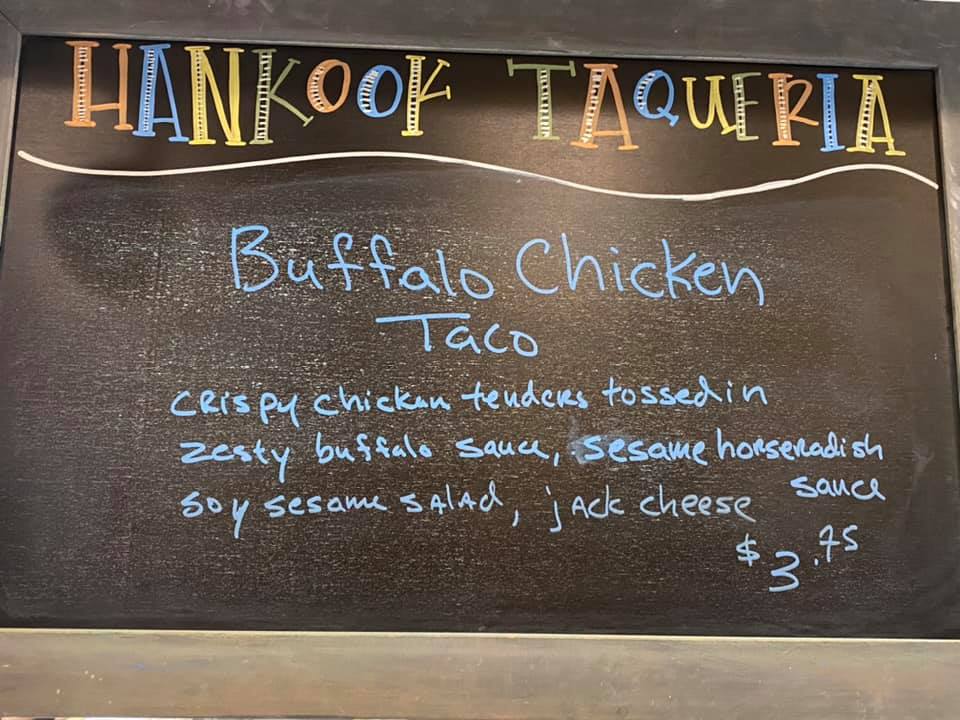 HANKOOK TAQUERIA
Buffalo Chicken
Taco
CRispy chicken tenders tossed in
zesty buffalo sauce, sesame horseradish
sauce
soy sesame SALAd, jAck cheese
$3.75